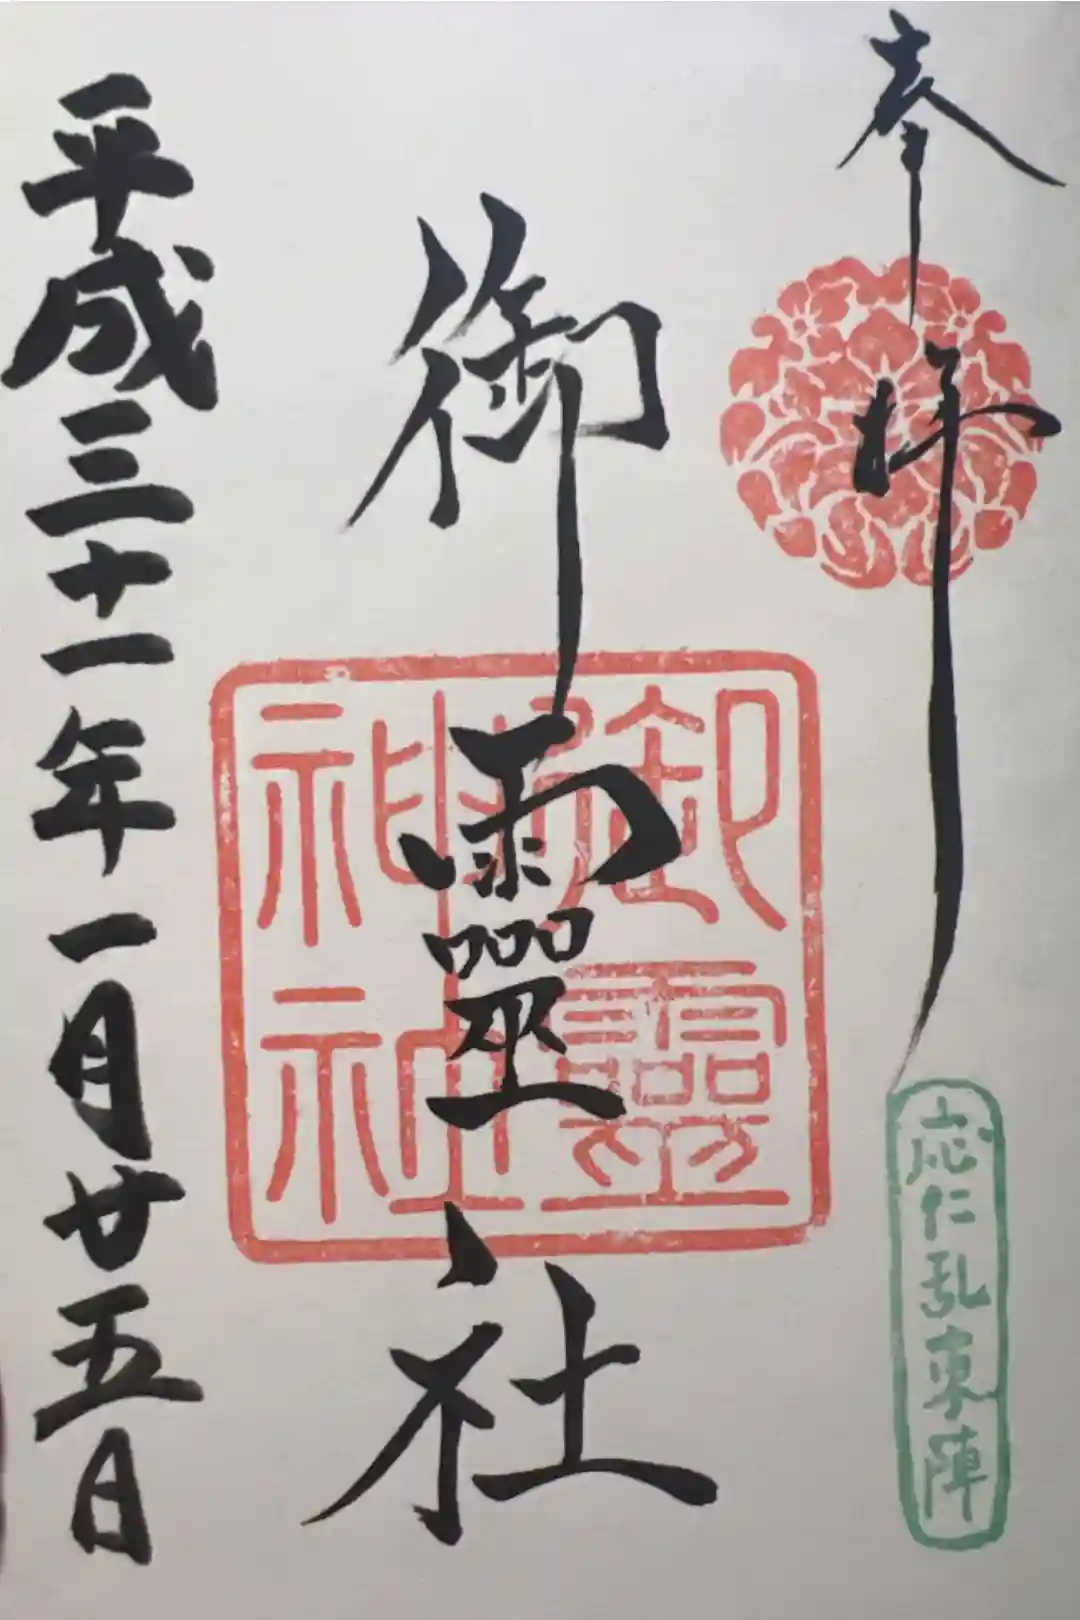 奉拝
応仁乱東陣
御靈社
御靈
神社
平成三十一年一月廿五日